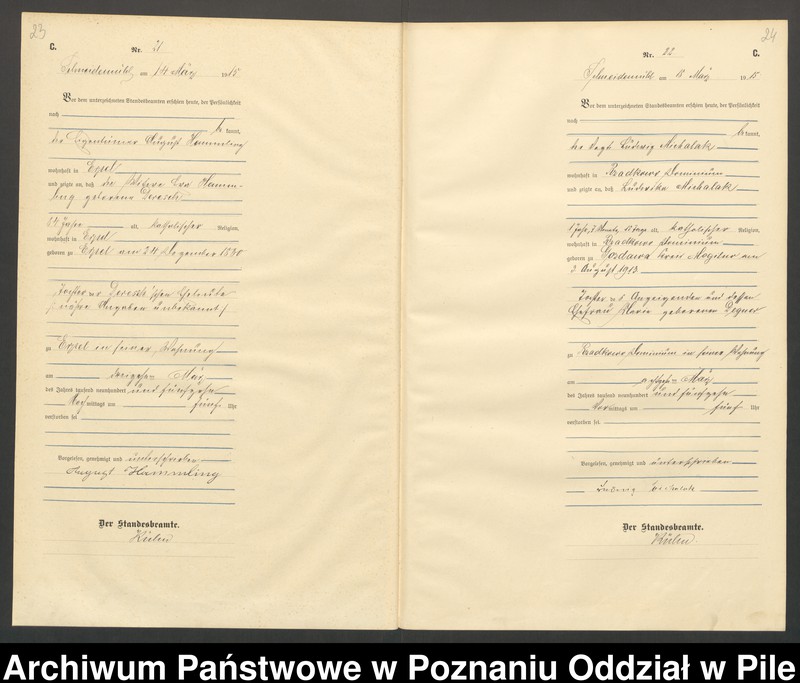 23
C.
Nr. 21
Schneidemühl am 14 März 1915.
Vor dem unterzeichneten Standesbeamten erschien heute, der Persönlichkeit
nach
be kannt,
der Eigentümer August Hammling
wohnhaft in Erpel
und zeigte an, daß die Witwe Eva Hamm-
ling geborene Dereseh
84 Jahre alt, katholischer Religion,
wohnhaft in Erpel
geboren zu Erpel am 24 Dezember 1830
Tochter der Eheleute
nähere Angaben unbekannt
zu Erpel in seiner Wohnung
am dreizehn März
des Jahres tausend neunhundert und fünfzehn
Nachmittags um fünf Uhr
verstorben sei
Vorgelesen, genehmigt und unterschrieben
August Hammling
Der Standesbeamte.
24
Nr. 22
C.
Schneidemühl am 18 März 1915.
Vor dem unterzeichneten Standesbeamten erschien heute, der Persönlichkeit
nach
be kannt,
der Vogt Ludwig Michalak
wohnhaft in Radkowo Dominium
und zeigte an, daß Ludovika Michalak
1 Jahr, 7 Monate, Tage alt, katholischer Religion,
wohnhaft in Radkowo Dominium
geboren zu Gondawa Kreis Mogilno am
3 August 1913
Tochter des Anzeigenden und dessen
Ehefrau Marie geborenen
zu Radkowo Dominium in seiner Wohnung
am achtzehn März
des Jahres tausend neunhundert und fünfzehn
Vormittags um fünf Uhr
verstorben sei
Vorgelesen, genehmigt und unterschrieben
Der Standesbeamte.
Archiwum Państwowe w Poznaniu Oddział w Pile